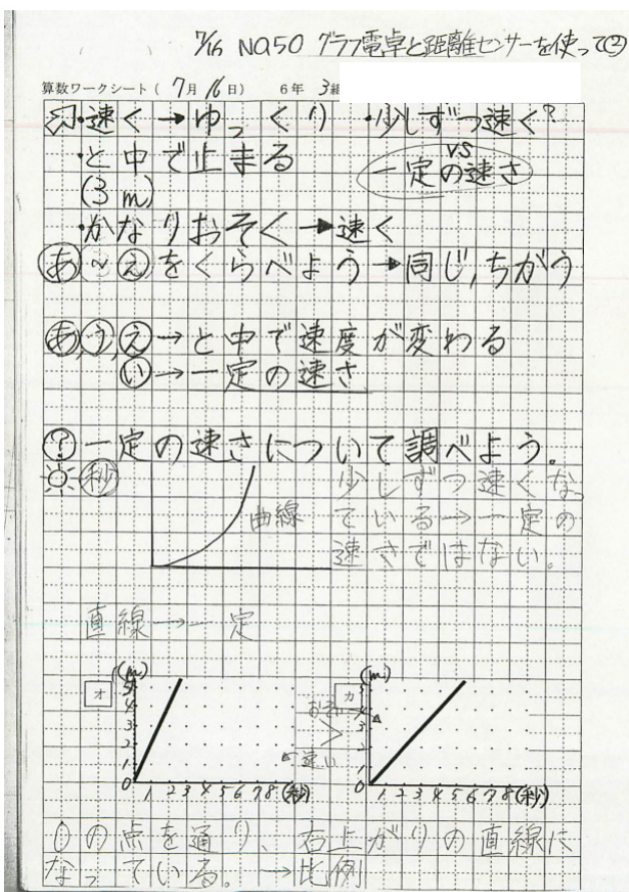 7/16 NO.50 グラフ電卓と距離センサーを使って②
算数ワークシート( 7月 16日) 6年 3組
・速く→ゆっくり ・少しずつ速く?
・と中で止まる vs
(3m) 一定の速さ
・かなりおそく→速く
あ~えをくらべよう→同じ,ちがう
あ,う,え→と中で速度が変わる
い→一定の速さ
?一定の速さについて調べよう。
秒 少しずつ速くなっ
曲線 ている→一定の
速さではない。
直線→一定
オ (m) 5 4 3 2 1 0 1 2 3 4 5 6 7 8 (秒)
おそい
速い
カ (m) 5 4 3 2 1 0 1 2 3 4 5 6 7 8 (秒)
0の点を通り、右上がりの直線に
なっている。→比例